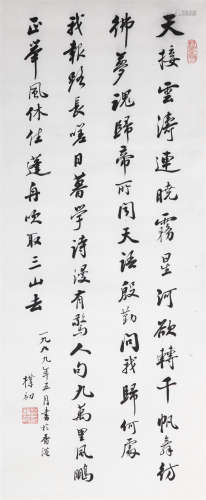 天接雲濤連曉霧星河欲轉千帆舞彷
彿夢魂歸帝所聞天語殷勤問我歸何處
我報路長嗟日暮學詩漫有驚人句九萬里風鵬
正舉風休住蓬舟吹取三山去
一九八九年五月書於香港
樸初